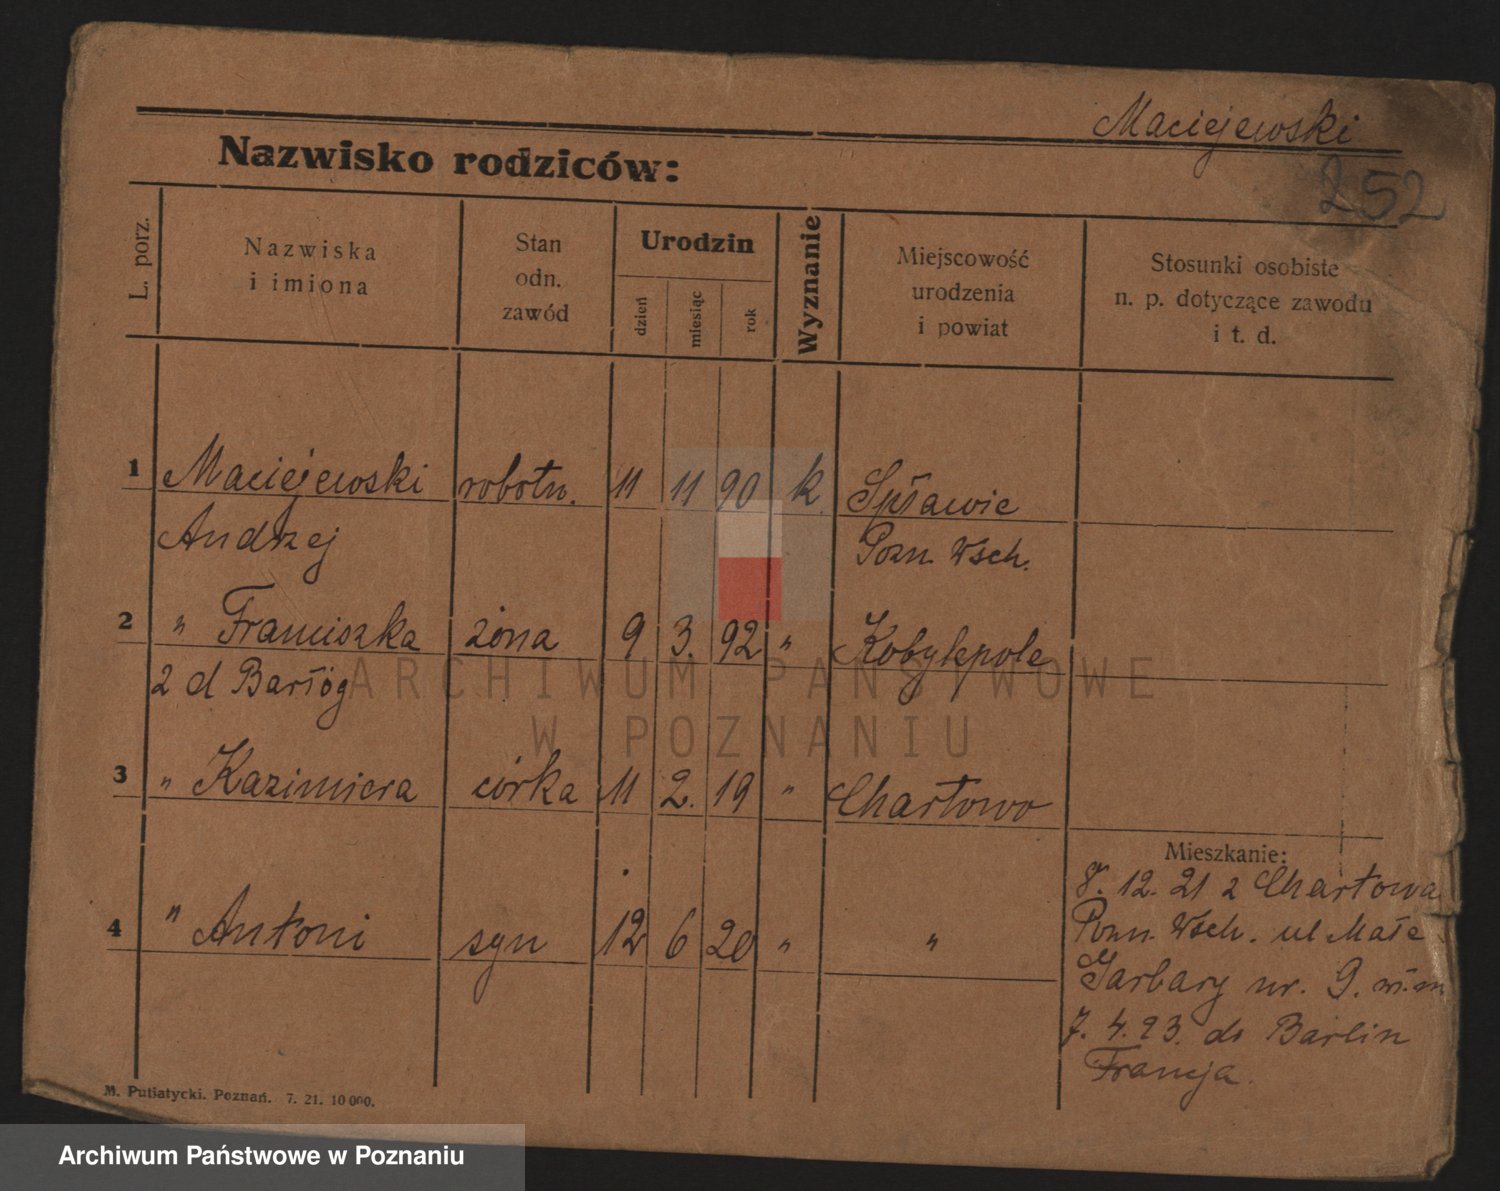 Maciejewski
252
Nazwisko rodziców:
L. porz.
Nazwiska
i imiona
Stan
odn.
zawód
Urodzin
dzień
miesiąc
rok
Wyznanie
Miejscowość
urodzenia
i powiat
Stosunki osobiste
n. p. dotyczące zawodu
i t. d.
1 Maciejewski robotn. 11 11 90 k. Spławie
Andrzej Pozn. Wsch.
2 " Franciszka żona 9 3. 92 " Kobylepole
z d Barłóg
3 " Kazimiera córka 11 2. 19 " Chartowo
4 " Antoni syn 12 6 20 " "
Mieszkanie:
8. 12. 21 z Chartowa
Pozn. Wsch. ul Małe
Garbary nr. 9.
7. 4. 23. do Barlin
Francja.
M. Putiatycki. Poznań. 7. 21. 10 000.
ARCHIWUM PAŃSTWOWE
W POZNANIU
Archiwum Państwowe w Poznaniu